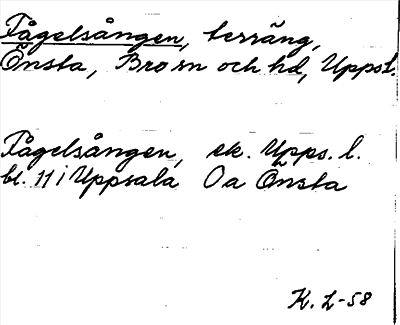 Fågelsången, terräng,
Önsta, Bro sn och hd, Upps.l.
Fågelsången, ek. Upps. l.
bl. 11 i Uppsala Oa Önsta
K. L-58